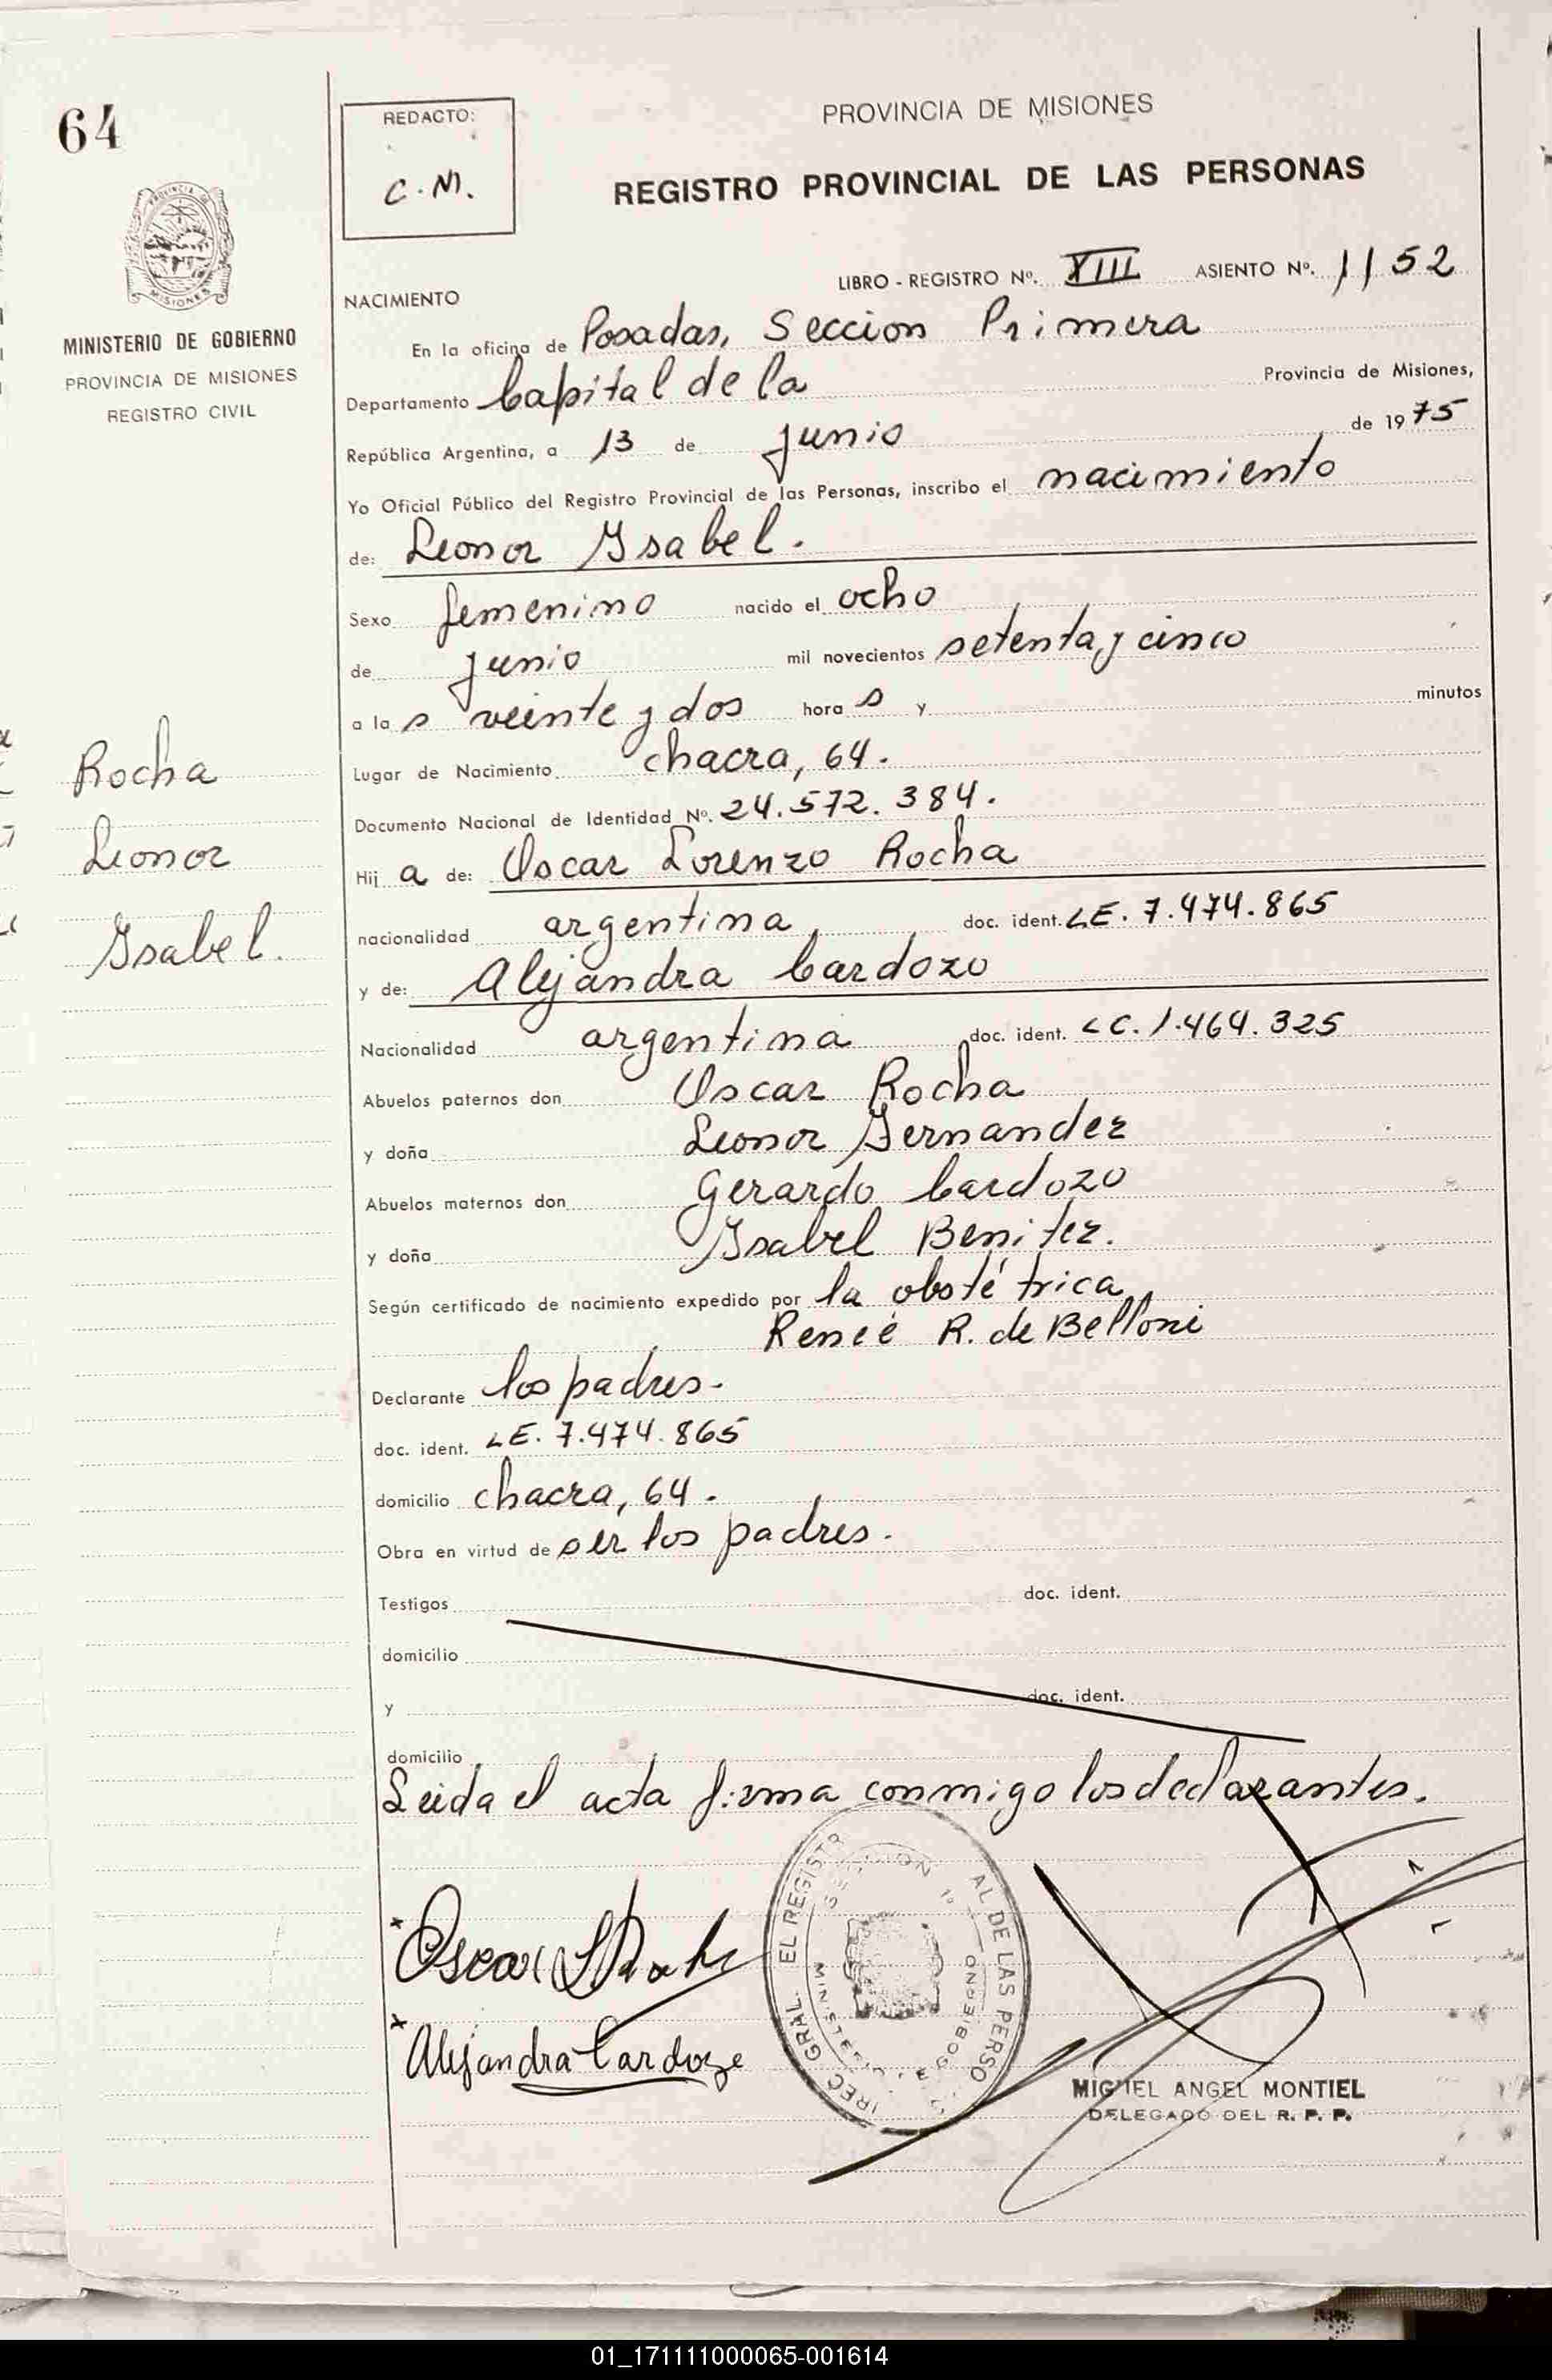 64
REDACTO:
C. M.
PROVINCIA DE MISIONES
REGISTRO PROVINCIAL DE LAS PERSONAS
MISIONES
MINISTERIO DE GOBIERNO
PROVINCIA DE MISIONES
REGISTRO CIVIL
LIBRO - REGISTRO Nº. XIII ASIENTO Nº. 1152
NACIMIENTO
En la oficina de Posadas, Seccion Primera
Departamento Capital de la Provincia de Misiones,
República Argentina, a 13 de junio de 1975
Yo Oficial Público del Registro Provincial de las Personas, inscribo el nacimiento
de: Leonor Ysabel.
Sexo femenino nacido el ocho
de junio mil novecientos setenta y cinco
a las veinte y dos horas y minutos
Lugar de Nacimiento chacra, 64.
Documento Nacional de Identidad Nº. 24.572.384.
Hija de: Oscar Lorenzo Rocha
nacionalidad argentina doc. ident. LE. 7.474.865
y de: Alejandra Cardozo
Nacionalidad argentina doc. ident. LC. 1.464.325
Abuelos paternos don Oscar Rocha
y doña Leonor Fernandez
Abuelos maternos don Gerardo Cardozo
y doña Ysabel Benitez.
Según certificado de nacimiento expedido por la obstétrica
Reneé R. de Belloni
Declarante los padres.
doc. ident. LE. 7.474.865
domicilio chacra, 64.
Obra en virtud de ser los padres.
Testigos doc. ident.
domicilio
y doc. ident.
domicilio
Leida el acta firma conmigo los declarantes.
Rocha
Leonor
Ysabel.
x Oscar L Rocha
x Alejandra Cardozo
IREC. GRAL. EL REGISTR AL DE LAS PERSO S
SECCION 1º
MINISTERIO E GOBIERNO
MIGUEL ANGEL MONTIEL
DELEGADO DEL R. P. P.
01_171111000065-001614